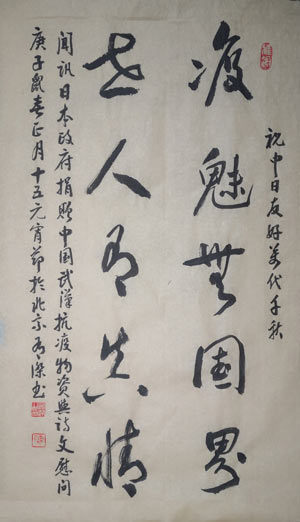 祝中日友好萬代千秋
疫魅無国界
世人有真情
闻讯日本政府捐赠中国武漢抗疫物资與诗文慰问
庚子鼠春正月十五元宵节於北京有傑书